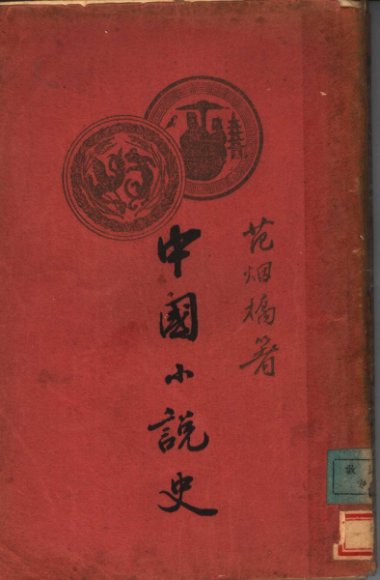 范烟橋著
中國小說史